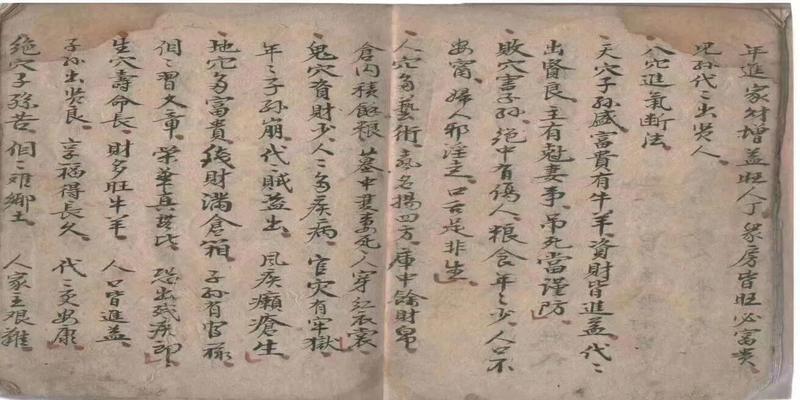 年進家財增益旺人丁衆房皆旺必富贵
児孫代〻出贤人
八穴進氣断法
天穴子孫盛富貴有牛羊資財皆進益代〻
出賢良主有尅妻事吊死當謹防
敗穴害子孫絶中有傷人粮倉年〻少人口不
安甯婦人邪淫走口舌是非生
人穴多藝術藝名揚四方庫中餘財帛
倉内積餘粮墓中妻妾死入穿紅衣裳
鬼穴資財少人〻多疾病官灾有牢獄
年〻子孫崩代〻賊益出風疾癩瘡生
地穴多富貴钱財满倉箱子孫有官禄
個〻習文章榮華真堪比恐出残疾郎
生穴壽命長財多旺牛羊人口皆進益
子孫出贤良享福得長久代〻交安康
绝穴子孫苦個〻难鄉土人家主艰難